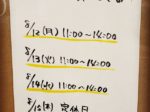 8/12(月) 11:00〜14:00
8/13(火) 11:00〜14:00
8/14(水) 11:00〜14:00
8/15(木) 定休日